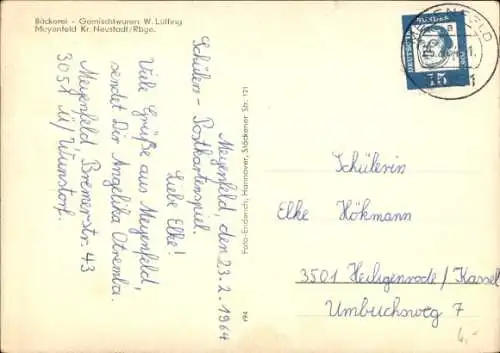 Bäckerei - Gemischtwaren W. Lütling
Meyenfeld Kr. Neustadt/Rbge.
Meyenfeld, den 23.2.1964
Schüler-Postkartenspiel.
Liebe Elke!
Viele Grüße aus Meyenfeld,
sendet Dir Angelika Otremba.
Meyenfeld Bremerstr. 43
3051 ü/Wunstorf.
Foto-Enderich, Hannover, Stöckener Str. 121
MEYENFELD
DEUTSCHE BUNDESPOST
15
Schülerin
Elke Hökmann
3501 Heiligenrode/Kassel
Umbachsweg 7
4,-